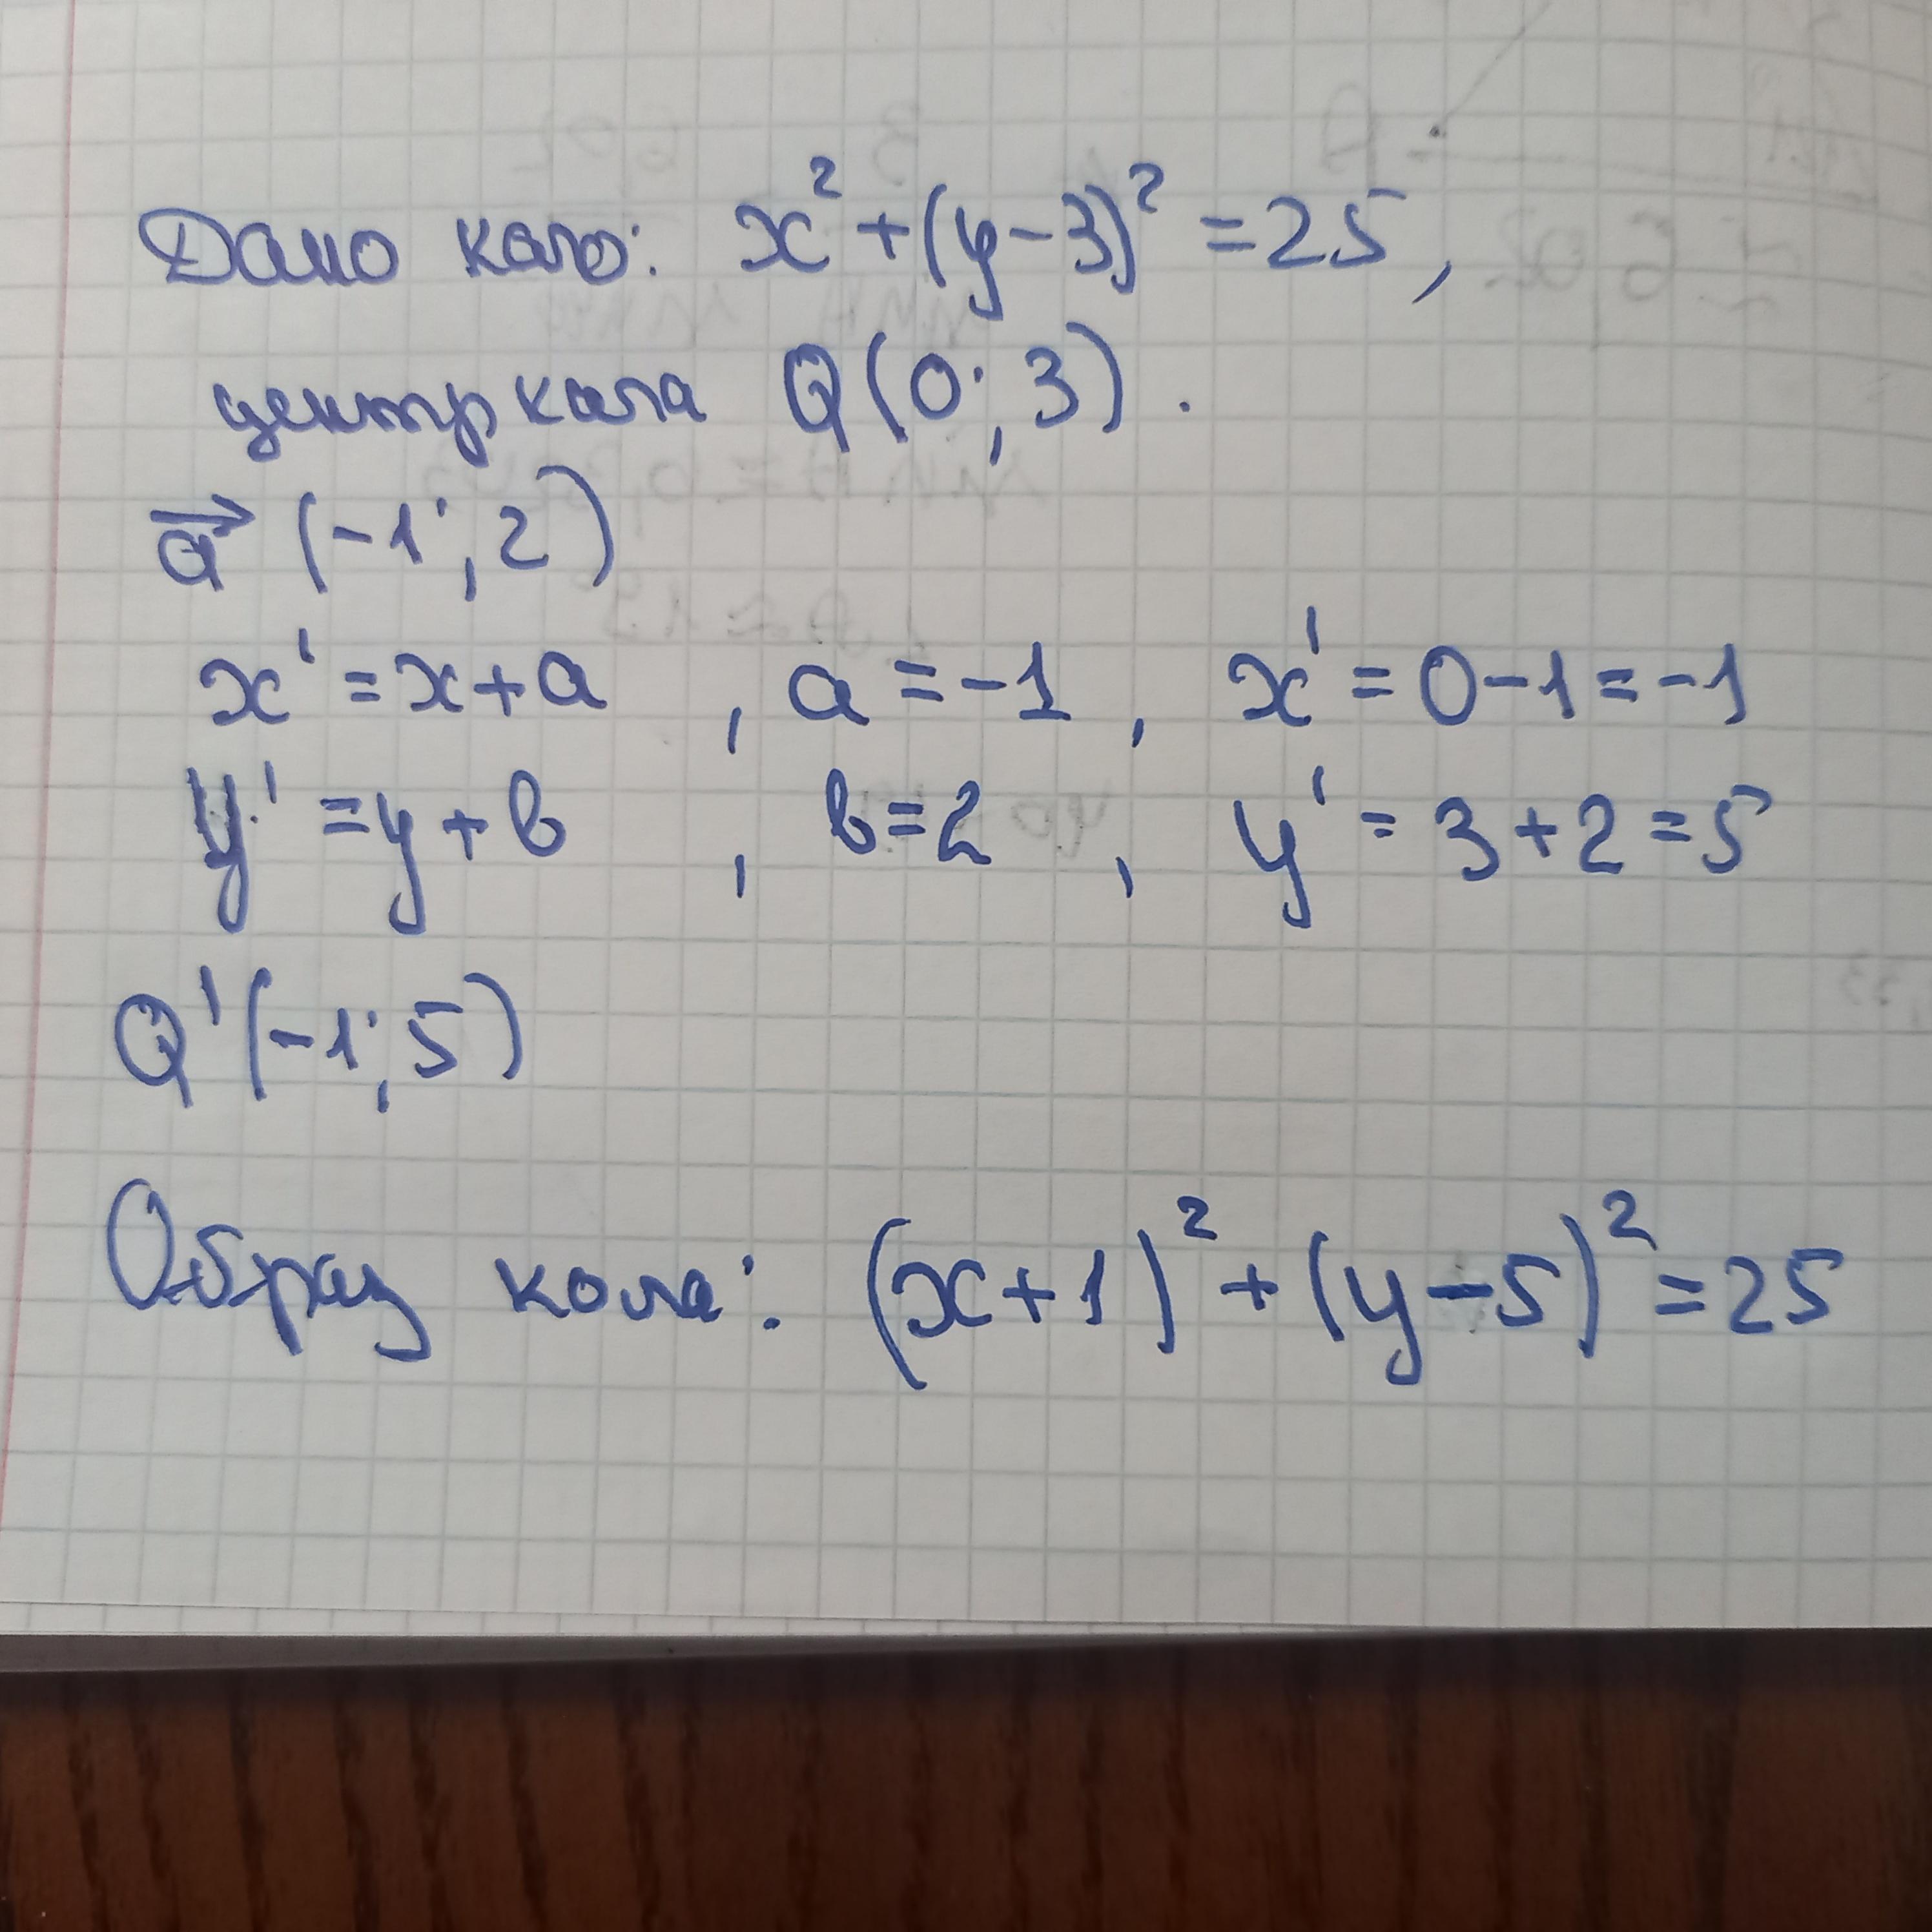 Дано коло: x² + (y - 3)² = 25,
центр кола Q(0; 3).
a⃗ (-1; 2)
x' = x + a , a = -1 , x' = 0 - 1 = -1
y' = y + b , b = 2 , y' = 3 + 2 = 5
Q'(-1; 5)
Образ кола: (x + 1)² + (y - 5)² = 25